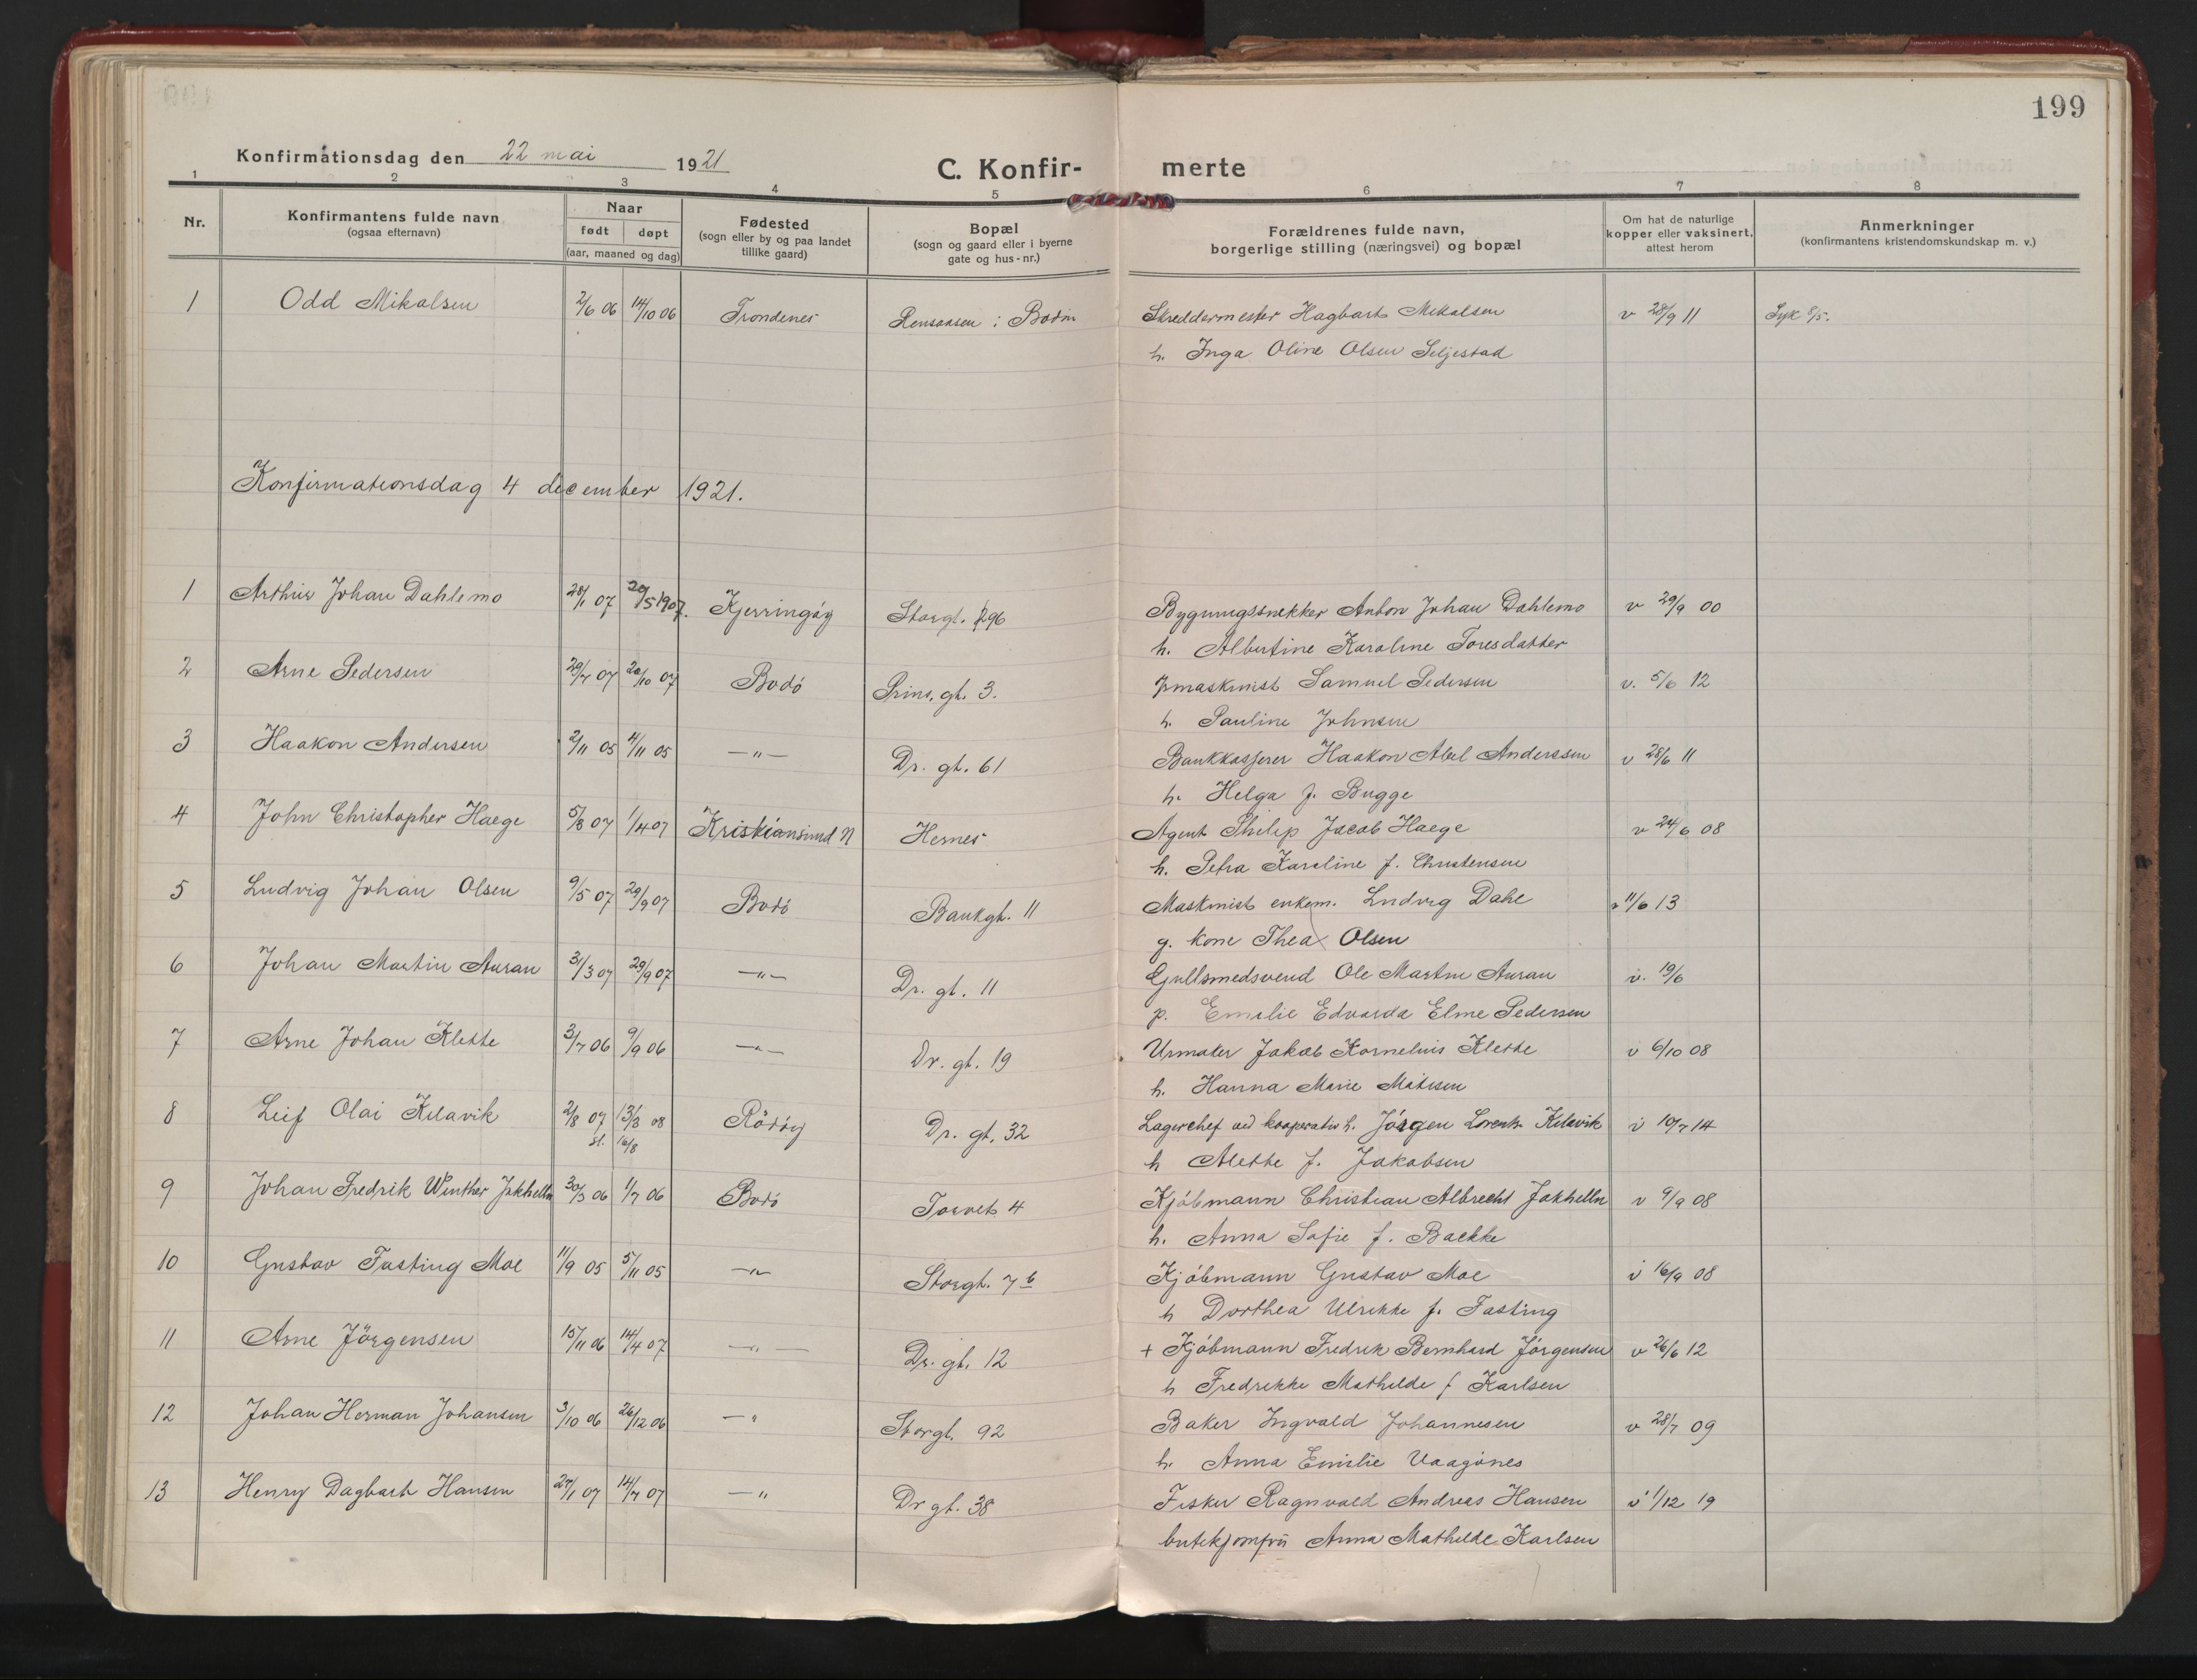 199
Konfirmationsdag den 22 mai 1921
C. Konfir- merte
1 2 3 4 5 6 7 8
Nr.
Konfirmantens fulde navn
(ogsaa efternavn)
Naar
født døpt
(aar, maaned og dag)
Fødested
(sogn eller by og paa landet
tillike gaard)
Bopæl
(sogn og gaard eller i byerne
gate og hus-nr.)
Forældrenes fulde navn,
borgerlige stilling (næringsvei) og bopæl
Om hat de naturlige
kopper eller vaksinert,
attest herom
Anmerkninger
(konfirmantens kristendomskundskap m. v.)
1 Odd Mikalsen 2/6 06 14/10 06 Trondenes Rensaasen i Bodin Skreddermester Hagbart Mikalsen v 28/9 11 Syk 8/5.
h. Inga Oline Olsen Seljestad
Konfirmationsdag 4 december 1921.
1 Arthur Johan Dahlemo 28/1 07 20/5 1907. Kjerringöy Storgt. 96 Bygningssnekker Anton Johan Dahlemo v 29/9 00
h. Albertine Karoline Toresdatter
2 Arne Pedersen 29/7 07 20/10 07 Bodö Prins. gt. 3. Pedersen v. 5/6 12
h. Pauline Johnsen
3 Haakon Andersen 2/11 05 4/11 05 —"— Dr. gt. 61 Bankkasserer Haakon Abel Anderssen v 28/6 11
h. Helga f. Bugge
4 John Christopher Haege 5/3 07 1/4 07 Kristiansund N Hernes Agent Philip Jacob Haege v 24/6 08
h. Petra Karoline f. Christensen
5 Ludvig Johan Olsen 9/5 07 29/9 07 Bodö Bankgt. 11 Maskinist enkem. Ludvig Dahl v 11/6 13
g. kone Thea Olsen
6 Johan Martin Auran 31/3 07 29/9 07 —"— Dr. gt. 11 Gullsmedsvend Ole Martin Auran v. 19/6
p. Emilie Edvarda Eline Pedersen
7 Arne Johan Klette 3/7 06 9/9 06 —"— Dr. gt. 19 Urmaker Jakob Kornelius Klette v 6/10 08
h. Hanna Marie Matisen
8 Leif Olai Kilavik 2/8 07 13/3 08 Rödöy Dr. gt. 32 Lagerchef ved kooperativ h. Jörgen Lorents Kilavik v 10/7 14
st. 16/8
h Alette f. Jakobsen
9 Johan Fredrik Winther Jakhelln 30/3 06 1/7 06 Bodö Torvet 4 Kjöbmann Christian Albrecht Jakhelln v 9/9 08
h. Anna Sofie f. Baekke
10 Gustav Fasting Moe 11/9 05 5/11 05 —"— Storgt. 7 b Kjöbmann Gustav Moe v 16/9 08
h Dorthea Ulrikke f. Fasting
11 Arne Jörgensen 15/11 06 14/4 07 —"— Dr. gt. 12 + Kjöbmann Fredrik Bernhard Jörgensen v 26/6 12
h Fredrikke Mathilde f Karlsen
12 Johan Herman Johansen 3/10 06 26/12 06 —" Storgt. 92 Baker Ingvald Johannesen v 28/7 09
h. Anna Emilie Vaagönes
13 Henry Dagbart Hansen 27/1 07 14/7 07 —" Dr gt. 38 Fisker Ragnvald Andreas Hansen v 1/12 19
butikjomfru Anna Mathilde Karlsen